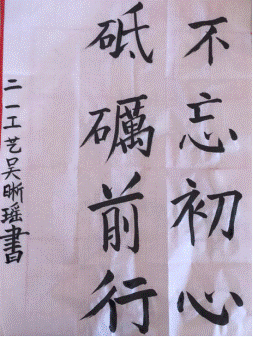 不忘初心
砥礪前行
二一工艺吴晰瑶書